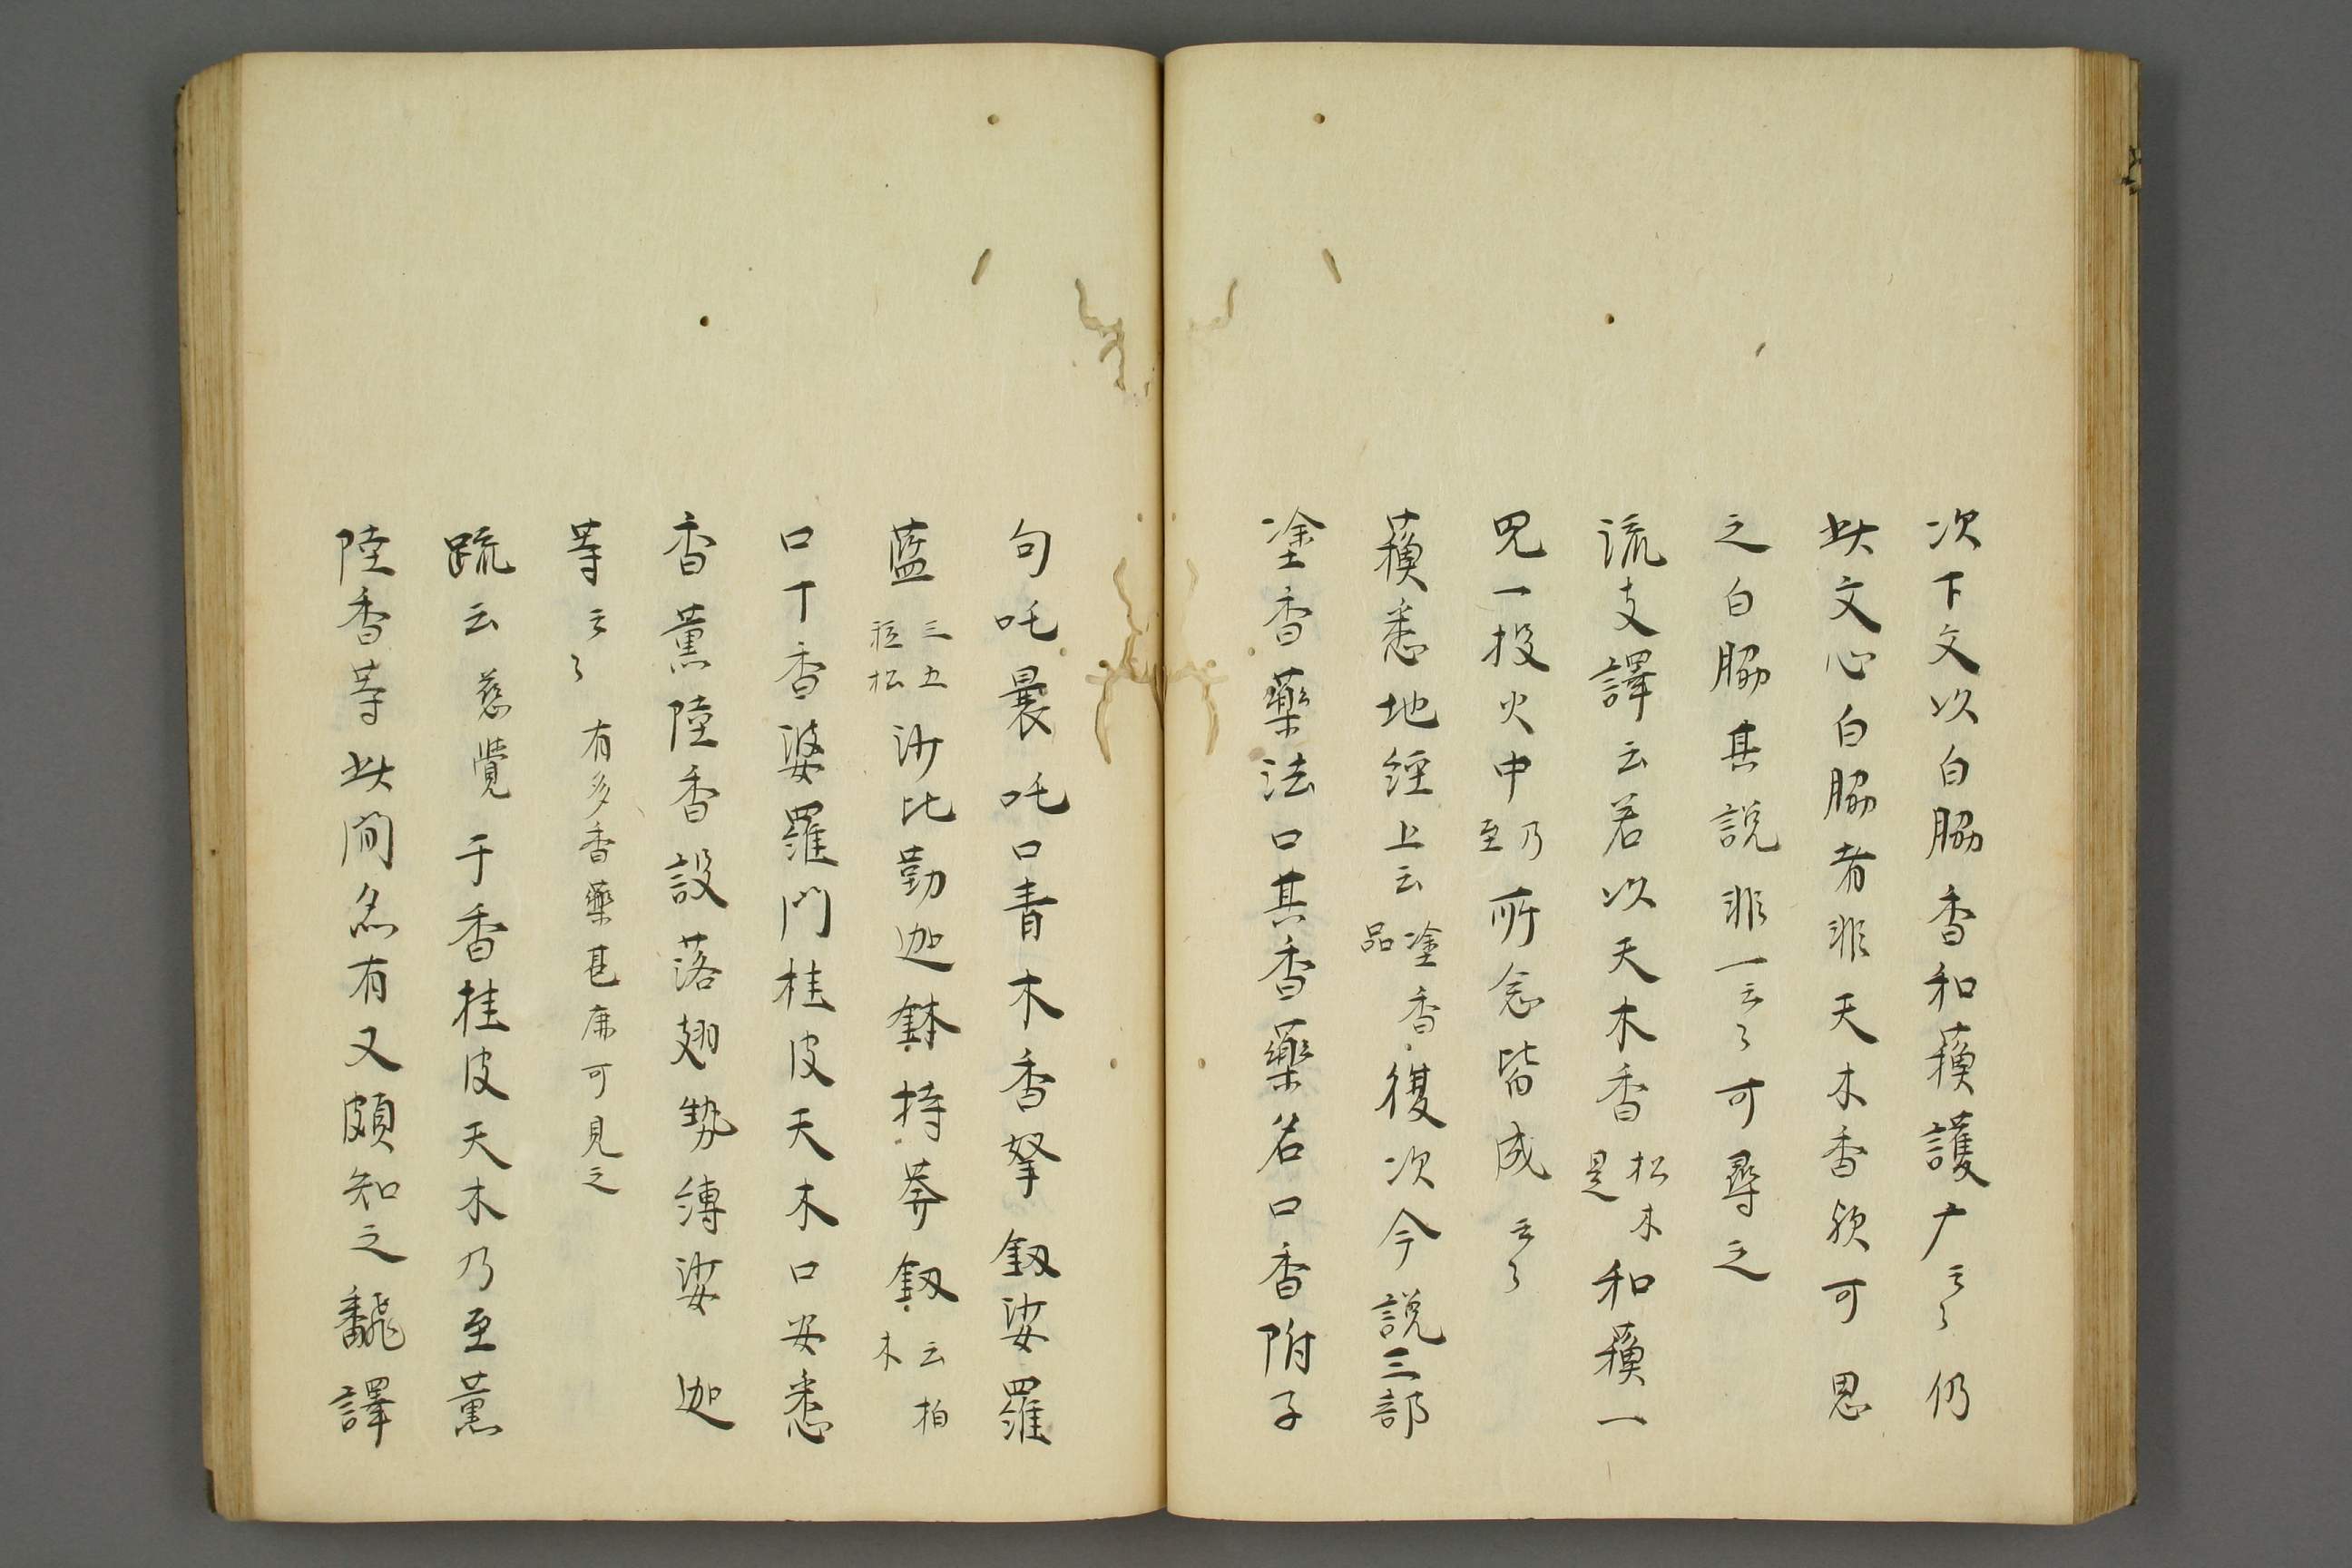 次下文以白脇香和蘓護广云々仍
此文心白脇者非天木香歟可思
之白脇其説非一云々可尋之
流支譯云若以天木香松木是和蘓一
咒一投火中乃至所念皆成云々
蘓悉地經上云塗香品復次今説三部
塗香藥法口其香藥名口香附子
句吒曩吒口青木香拏釼娑羅
藍三五粒松沙比勒迦鉢持莽釼云柏木
口丁香婆羅門桂皮天木口安悉
香薫陸香設落翅勢縛娑迦
等云々有多香藥甚廣可見之
疏云慈覺于香桂皮天木乃至薫
陸香等此間名有又頗知之飜譯